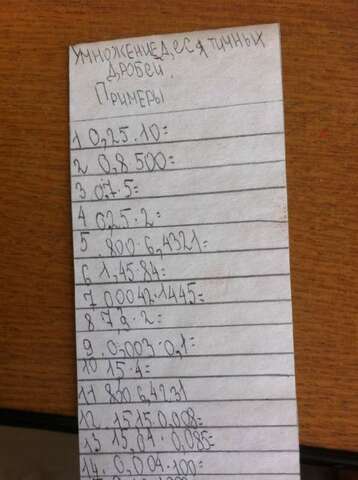 Умножение десятичных
дробей.
Примеры
1 0,25·10=
2 0,8 500=
3 0,7·5=
4 0,25·2=
5 800·6,4321=
6 1,45·84=
7 0,0042·1445=
8 7,2·2=
9 0,003·0,1=
10 15·4=
11 800,64231
12. 15,15·0,008=
13 15,04·0,085=
14. 0,004·100=